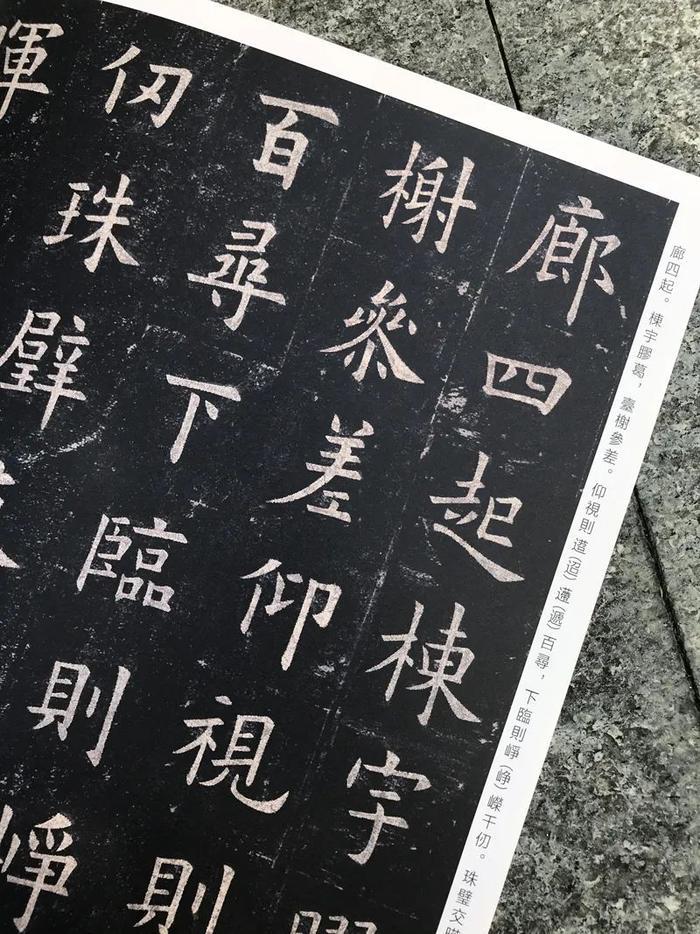 廊四起棟宇
榭參差仰視則
百尋下臨則崢
仞珠璧
暉
廊四起。棟宇膠葛，臺榭參差。仰視則(迢)(遞)百尋，下臨則崢(峥)嶸千仞。珠璧交